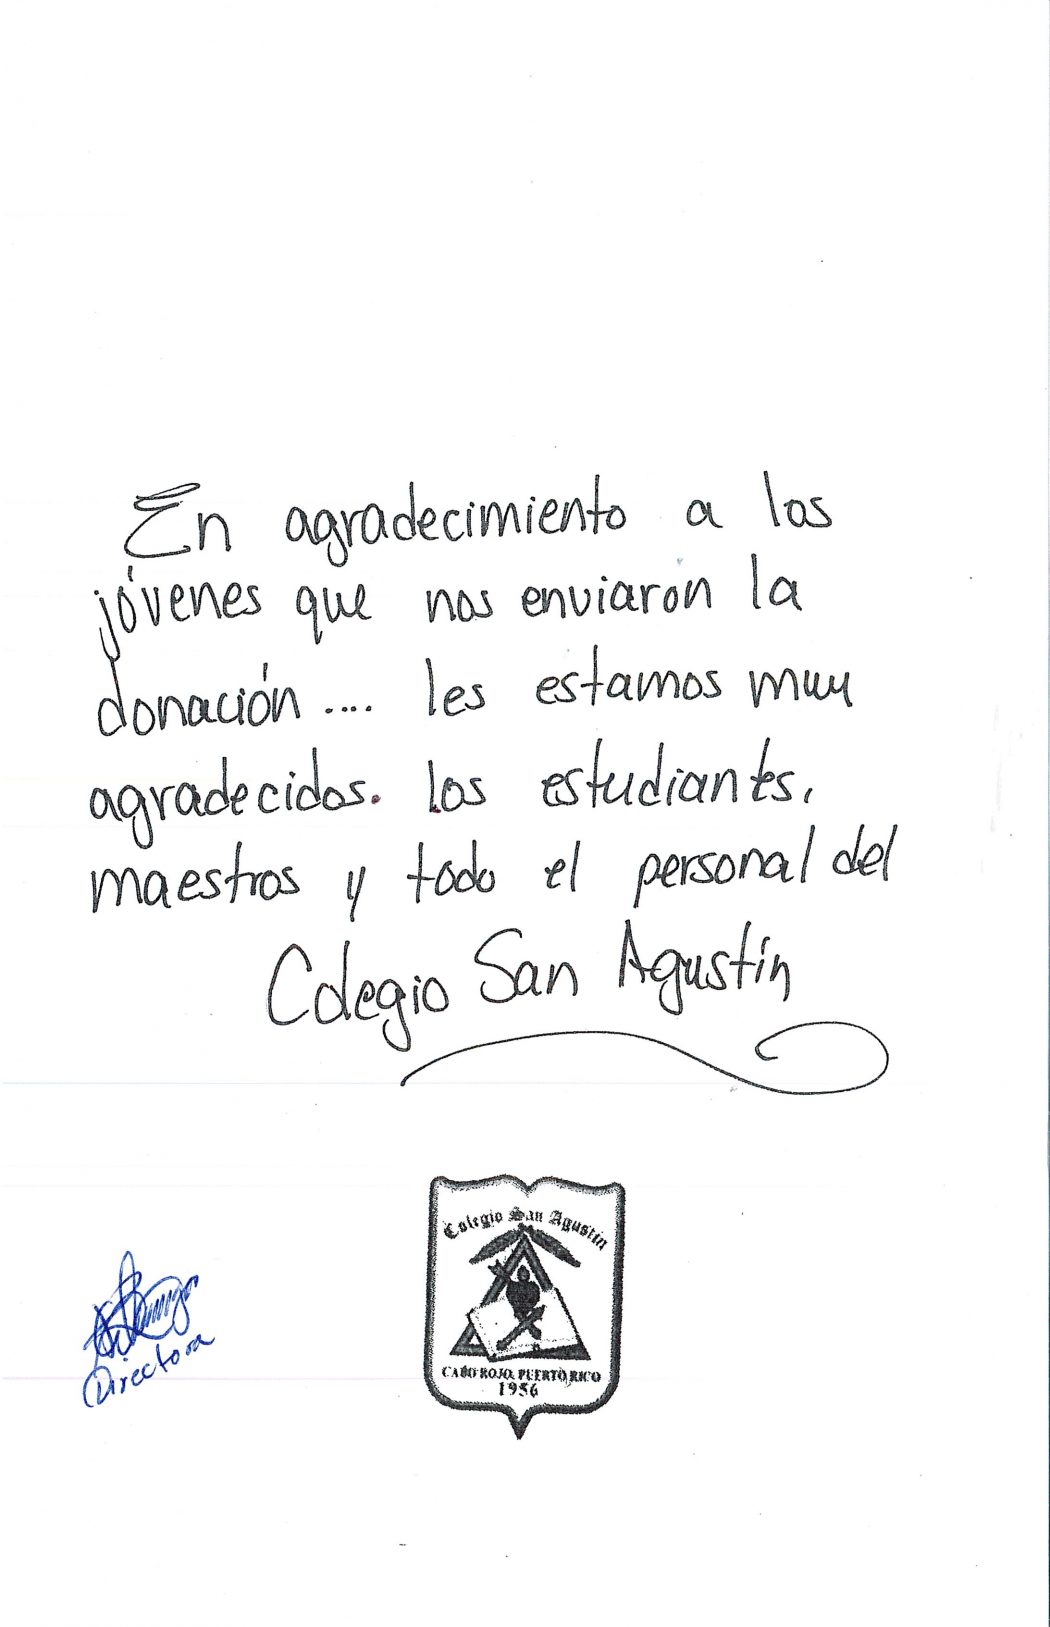 En agradecimiento a los
jóvenes que nos enviaron la
donación .... les estamos muy
agradecidos. Los estudiantes,
maestros y todo el personal del
Colegio San Agustín
Colegio San Agustín
CABO ROJO, PUERTO RICO
1956
Directora